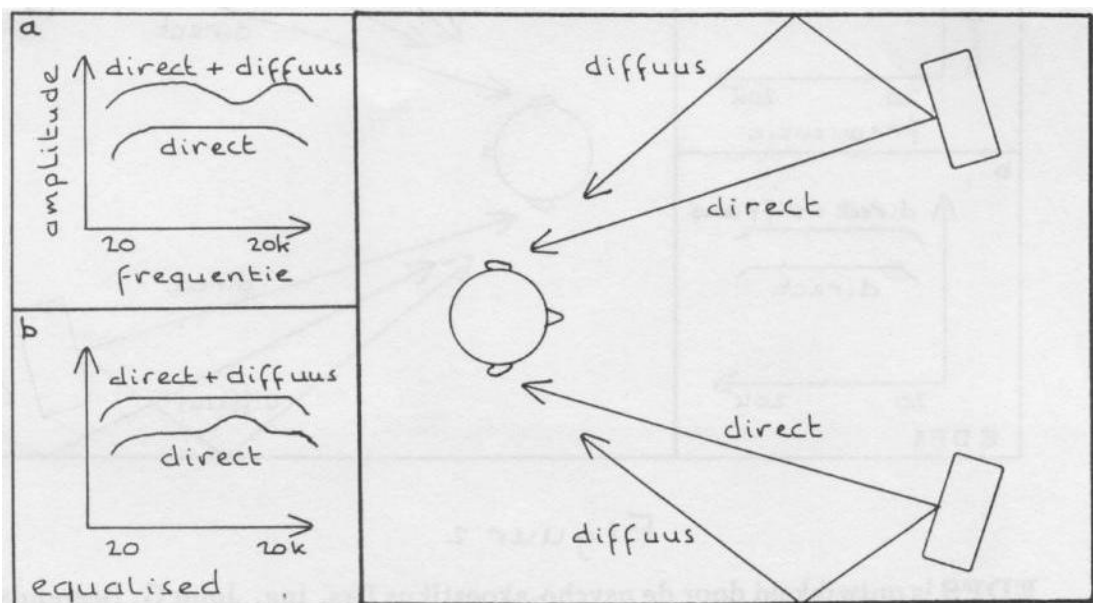 a
direct + diffuus
direct
amplitude
20 20k
frequentie
b
direct + diffuus
direct
20 20k
equalised
diffuus
direct
direct
diffuus